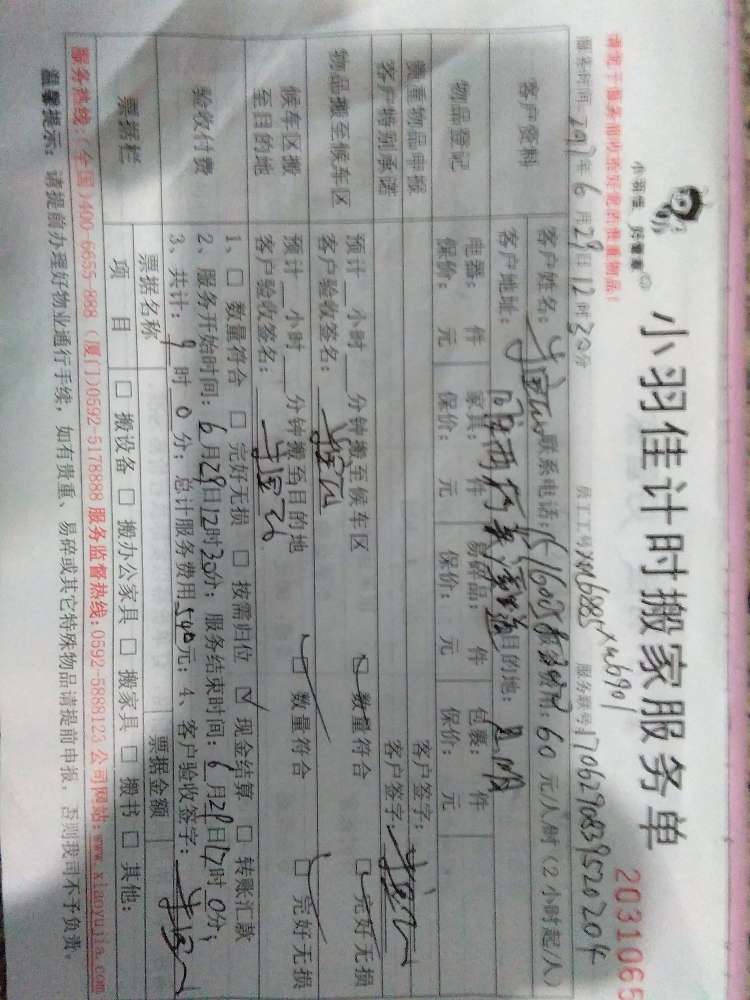 小羽佳 好管家
小羽佳计时搬家服务单
2031065
请您于服务前收拾好您的贵重物品!
员工工号 xm6885 xm6901 服务联号 1706290839520204
服务时间: 2017年6月29日12时30分
客户资料
客户姓名: 联系电话: 服务费用: 60元/人/时 (2小时起/人)
客户地址: 目的地:
物品登记
电器: 件 家具: 件 易碎品: 件 包裹: 件
保价: 元 保价: 元 保价: 元 保价: 元
贵重物品申报 客户签字:
客户特别承诺 客户签字:
物品搬至候车区
预计__小时__分钟搬至候车区 数量符合 完好无损
客户验收签名:
候车区搬至目的地
预计__小时__分钟搬至目的地 数量符合 完好无损
客户验收签名:
验收付费
1、□ 数量符合 □ 完好无损 □ 按需归位 ☑ 现金结算 □ 转账汇款
2、服务开始时间: 6月29日12时30分; 服务结束时间: 6月29日17时0分;
3、共计: 9时0分; 总计服务费用540元; 4、客户验收签字:
票据栏
票据名称 票据金额
项 目 □ 搬设备 □ 搬办公家具 □ 搬家具 □ 搬书 □ 其他:
服务热线: (全国)400-6655-888 (厦门)0592-5178888 服务监督热线: 0592-5889123 公司网站: www.xiaoyujia.com
温馨提示: 请提前办理好物业通行手续, 如有贵重、易碎或其它特殊物品请提前申报, 否则我司不予负责。